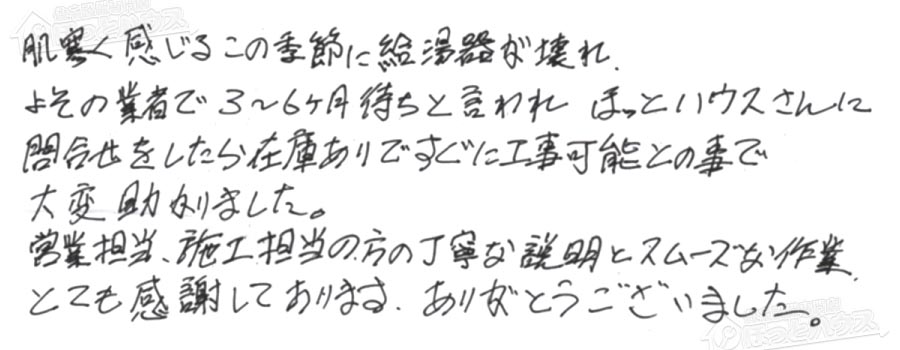 肌寒く感じるこの季節に給湯器が壊れ、
よその業者で3〜6ヶ月待ちと言われ ほっとハウスさんに
問合せをしたら在庫ありですぐに工事可能との事で
大変助かりました。
営業担当、施工担当の方の丁寧な説明とスムーズな作業、
とても感謝しております。ありがとうございました。
ほっとハウス
ほっとハウス